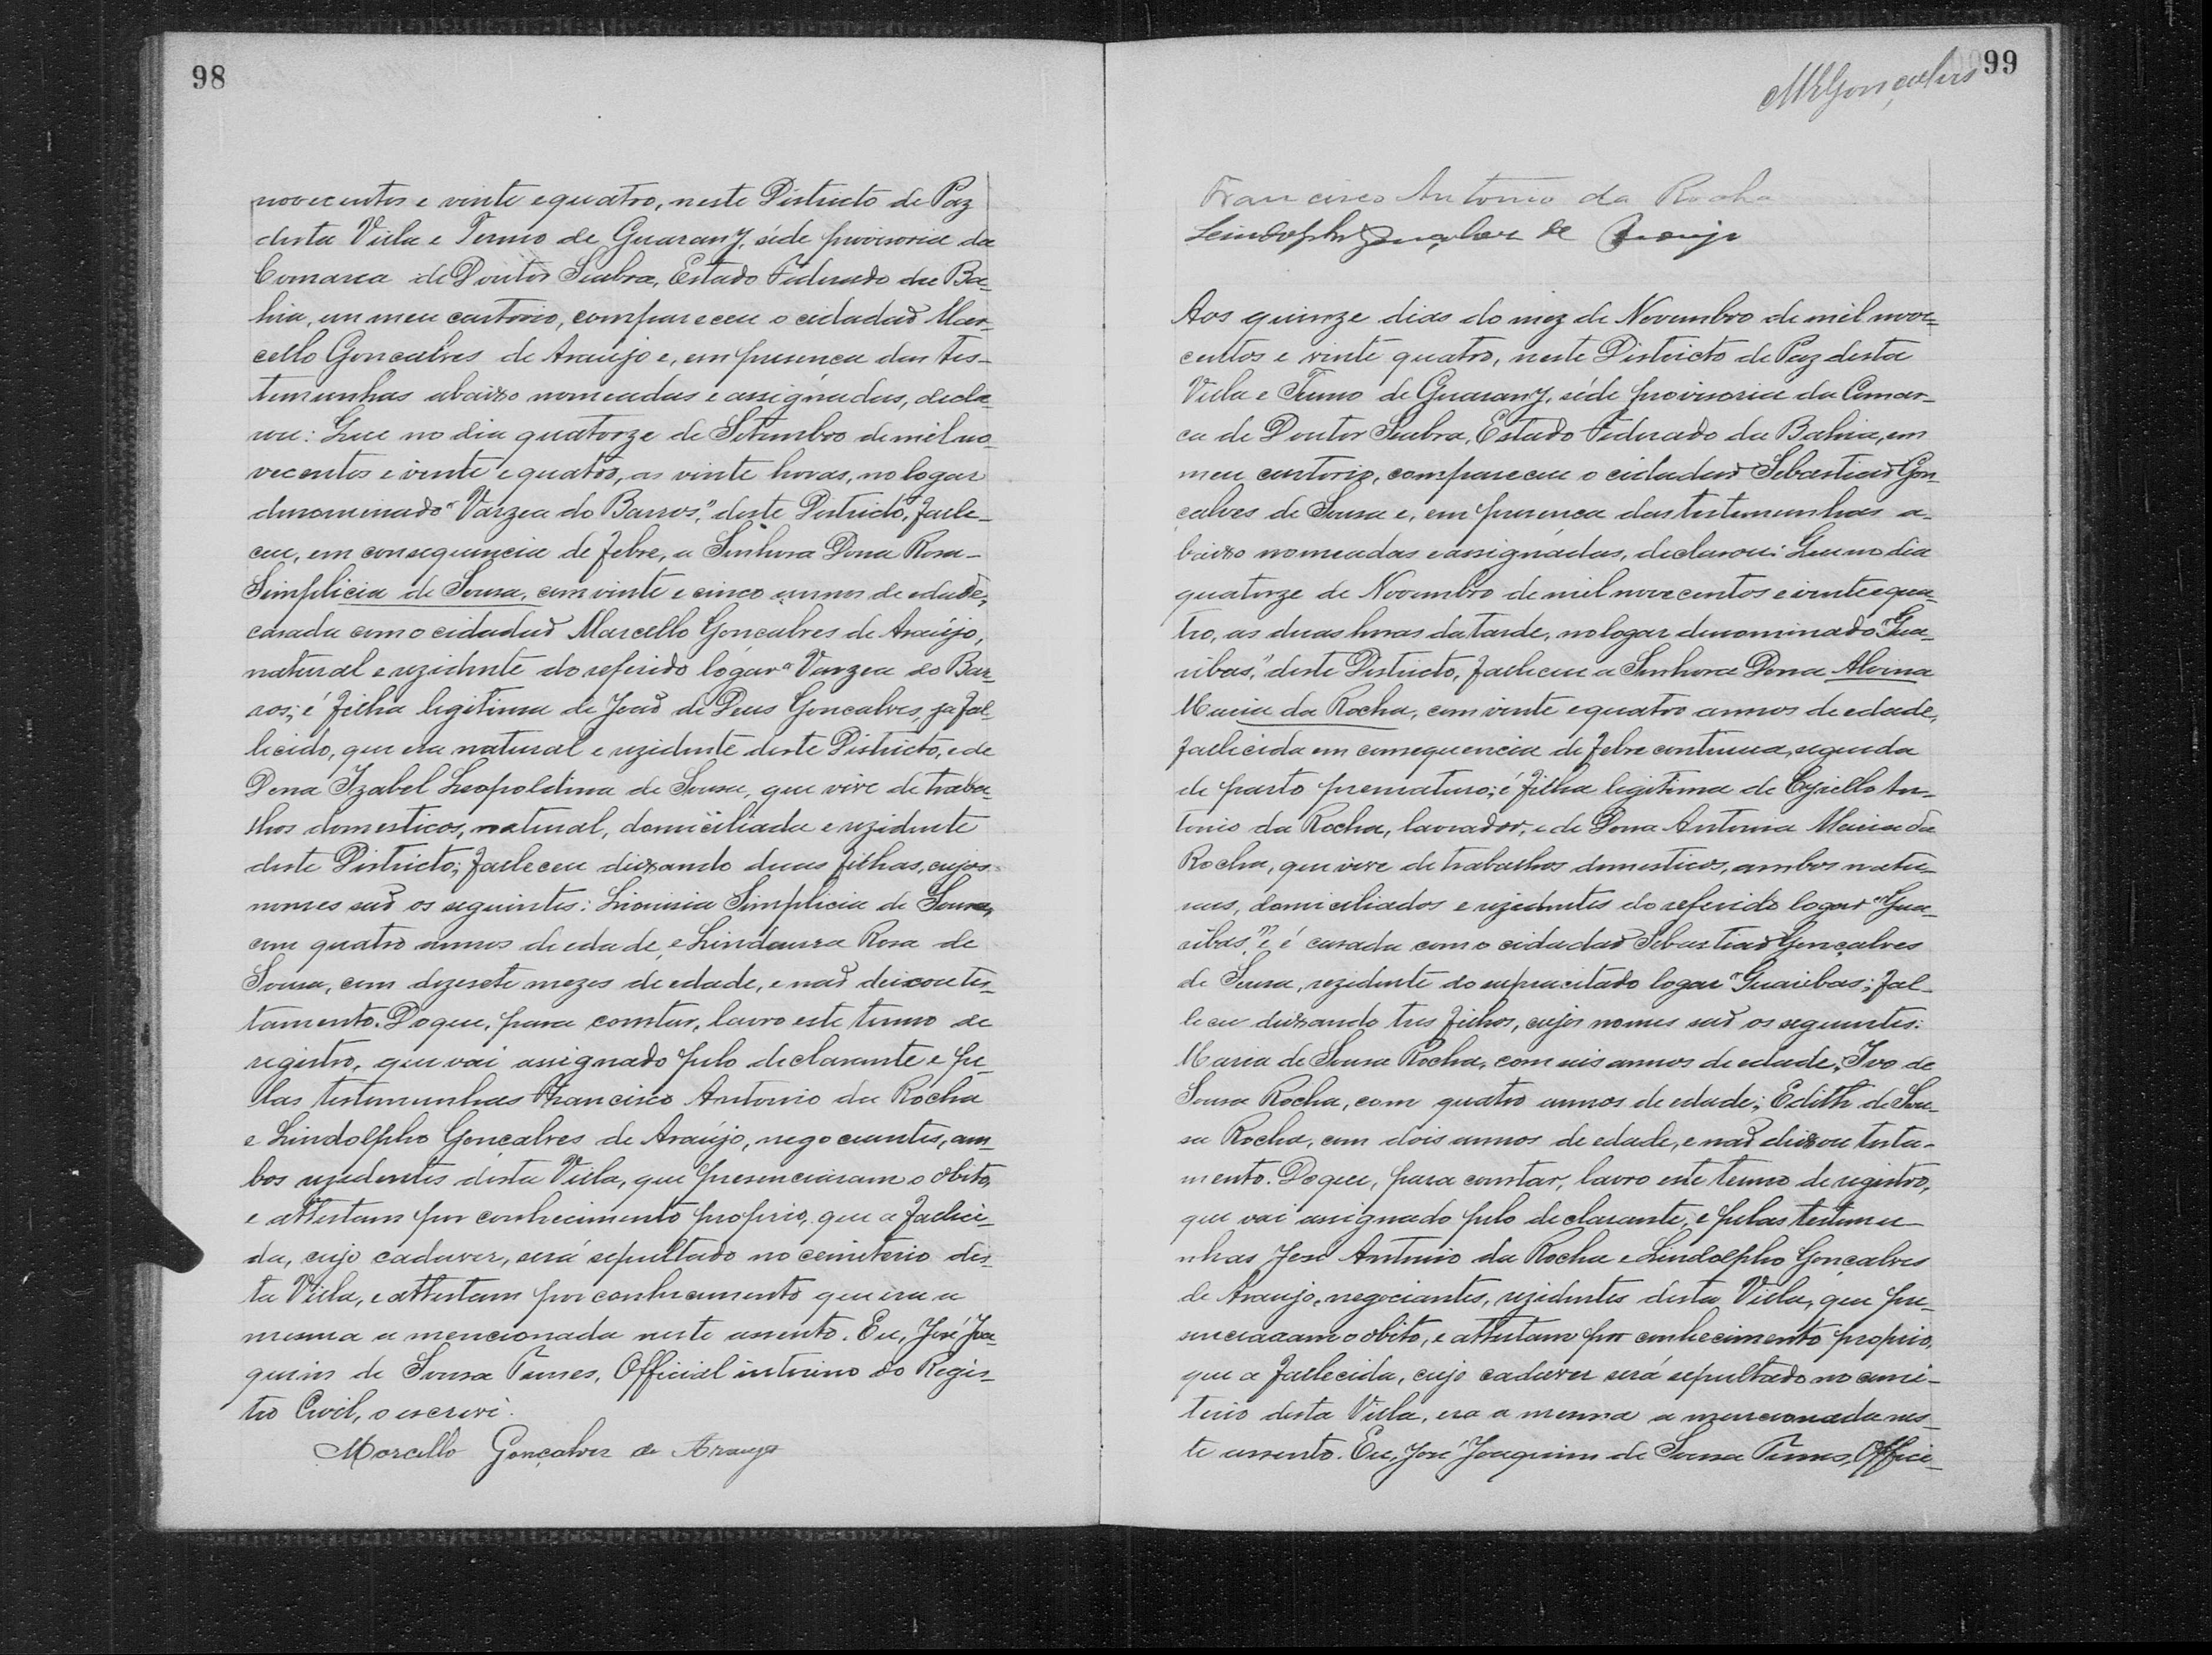 98
novecentos e vinte e quatro, neste Districto de Paz
desta Villa e Termo de Guarany, séde provisoria da
Comarca de Doutor Seabra, Estado Federado da Ba-
hia, em meu cartorio, compareceu o cidadaõ Mar-
cello Goncalves de Araújo e, em presença das tes-
temunhas abaixo nomeadas e assignadas, decla-
rou: Que no dia quatorze de Setembro de mil no-
vecentos e vinte e quatro, as vinte horas, no logar
denominado "Varzea do Barros," deste Districto, falle-
ceu, em consequencia de febre, a Senhora Dona Rosa
Simplicia de Sousa, com vinte e cinco annos de edade,
casada com o cidadaõ Marcello Gonçalves de Araújo,
natural e rezidente do referido logar "Varzea do Bar-
ros; é filha legitima de Joaõ de Deus Goncalves, ja fal-
lecido, que era natural e rezidente deste Districto, e de
Dona Izabel Leopoldina de Sousa, que vive de traba-
lhos domesticos, natural, domiciliada e rezidente
deste Districto; falleceu deixando duas filhas, cujos
nomes saõ os seguintes: Simplicia de Sousa,
com quatro annos de edade, e Lindaura Rosa de
Sousa, com dezesete mezes de edade, e naõ deixou tes-
tamento. Do que, para constar, lavro este termo de
registro, que vai assignado pelo declarante e pe-
las testemunhas Francisco Antonio da Rocha
e Lindolpho Gonçalves de Araújo, negociantes, am-
bos rezidentes desta Villa, que presenciaram o obito,
e attestam por conhecimento proprio, que a falleci-
da, cujo cadaver, será sepultado no cemiterio des-
ta Villa, e attestam por conhecimento que era a
mesma a mencionada neste assento. Eu, José Joa-
quim de Sousa Tunes, Official interino do Regis-
tro Civil, o escrevi.
Marcello Gonçalves de Araujo
99
MRGonçalves
Francisco Antonio da Rocha
Lindolpho Gonçalves de Araujo
Aos quinze dias do mez de Novembro de mil nove-
centos e vinte quatro, neste Districto de Paz desta
Villa e Termo de Guarany, séde provisoria da Comar-
ca de Doutor Seabra, Estado Federado da Bahia, em
meu cartorio, compareceu o cidadaõ Sebastiaõ Gon-
çalves de Sousa e, em presença das testemunhas a-
baixo nomeadas e assignadas, declarou: Que no dia
quatorze de Novembro de mil novecentos e vinte e qua-
tro, as duas horas da tarde, no logar denominado "Gua-
ribas," deste Districto, falleceu a Senhora Dona Alvina
Maria da Rocha, com vinte e quatro annos de edade,
fallecida em consequencia de febre continua, seguida
de parto prematuro; é filha legitima de Cyrillo An-
tonio da Rocha, lavrador, e de Dona Antonia Maria da
Rocha, que vive de trabalhos domesticos, ambos natu-
raes, domiciliados e rezidentes do referido logar "Gua-
ribas," e é casada com o cidadaõ Sebastiaõ Gonçalves
de Sousa, rezidente do supracitado logar "Guaribas; fal-
leceu deixando tres filhos, cujos nomes saõ os seguintes:
Maria de Sousa Rocha, com seis annos de edade; Ivo de
Sousa Rocha, com quatro annos de edade; Edith de Sou-
sa Rocha, com dois annos de edade, e naõ deixou testa-
mento. Do que, para constar, lavro este termo de registro,
que vai assignado pelo declarante, e pelas testemu-
nhas José Antonio da Rocha e Lindolpho Gonçalves
de Araujo, negociantes, rezidentes desta Villa, que pre-
senciaram o obito, e attestam por conhecimento proprio,
que a fallecida, cujo cadaver será sepultado no cemi-
terio desta Villa, era a mesma a mencionada nes-
te assento. Eu, José Joaquim de Sousa Tunes, Offici-